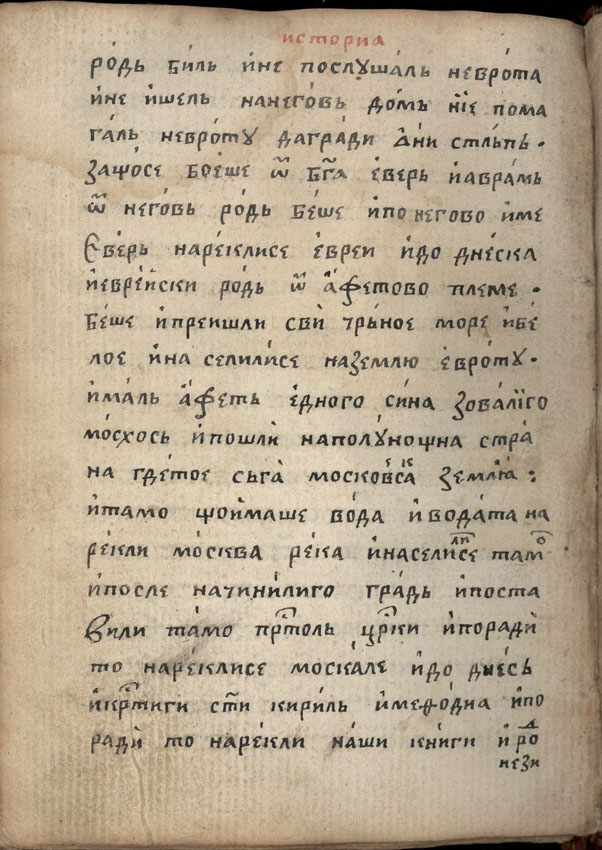 история
ро́дь би́ль и҆́не послꙋ́шаль невро́та
и҆́не и҆́шель нанего́вь до́мь ні́е пома
га́ль невро́тꙋ дагра́ди а҆́ни стль́пь.
защо́се боѐше ѿ бг҃а є҆́верь и҆авра́мь
ѿ него́вь ро́дь бе́ше и҆по негово и҆́ме
Єве́рь наре́клисе є҆вреи и҆́до дне́ска
и҆евре́йски ро́дь ѿ а҆́фетово племе.
бе́ше и҆преишли свѝ чрь́ное море и҆бе́
лое и҆́на сели́лисе наземлю є҆вро́тꙋ.
и҆ма́ль а҆́феть є҆́дного си́на зова́лїго
мо́схось и҆пошлѝ наполꙋ́ношна стра́
на где́тое сьга̀ московска землꙗ̀:
и҆́тамо щоимаше во́да и҆вода́та на
ре́кли мо́сква ре́ка и҆насели́лисе тамо
и҆после начини́лиго гра́дь и҆поста
вили та́мо прⷭ҇толь цр҃ки и҆порадѝ
то наре́клисе моска́ле и҆́до дне́сь
и҆крⷭ҇тиги ст҃и кири́ль и҆меѳо́диа и҆по
радѝ то наре́кли на́ши кни́ги и҆ ро́д
нези